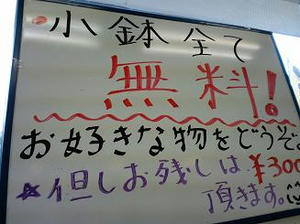 小鉢全て
無料!
お好きな物をどうぞ
★但しお残しは¥300
頂きます。